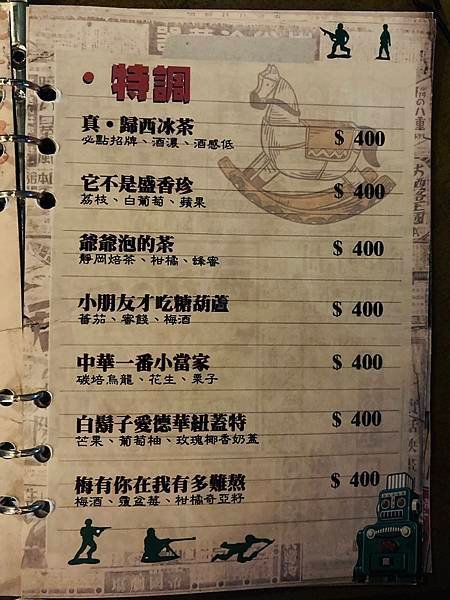 ・特調
真・歸西冰茶
$ 400
必點招牌、酒濃、酒感低
它不是盛香珍
$ 400
荔枝、白葡萄、蘋果
爺爺泡的茶
$ 400
靜岡焙茶、柑橘、蜂蜜
小朋友才吃糖葫蘆
$ 400
蕃茄、蜜餞、梅酒
中華一番小當家
$ 400
碳培烏龍、花生、栗子
白鬍子愛德華紐蓋特
$ 400
芒果、葡萄柚、玫瑰椰香奶蓋
梅有你在我有多難熬
$ 400
梅酒、覆盆莓、柑橘奇亞籽